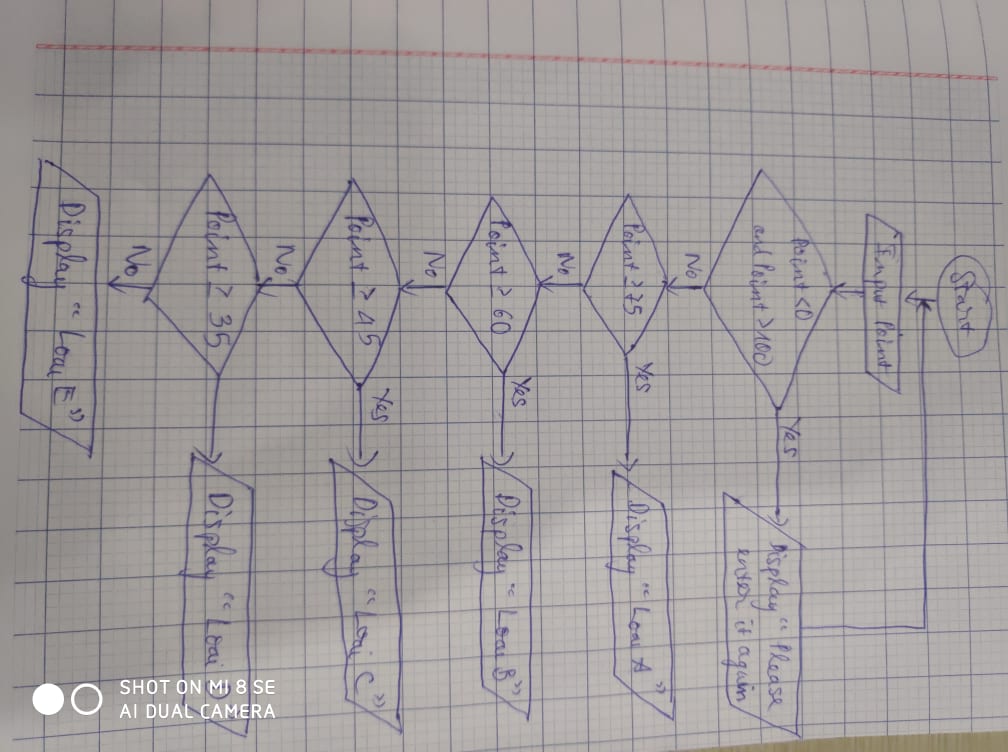 Start
Input Point
Point <0
and Point >100
Yes
Display “ Please
enter it again
No
Point ≥ 75
Yes
Display “ Loai A ”
No
Point ≥ 60
Yes
Display “ Loai B ”
No
Point ≥ 45
Yes
Display “ Loai C ”
No
Point ≥ 35
Display “ Loai D
No
Display “ Loai E ”
SHOT ON MI 8 SE
AI DUAL CAMERA